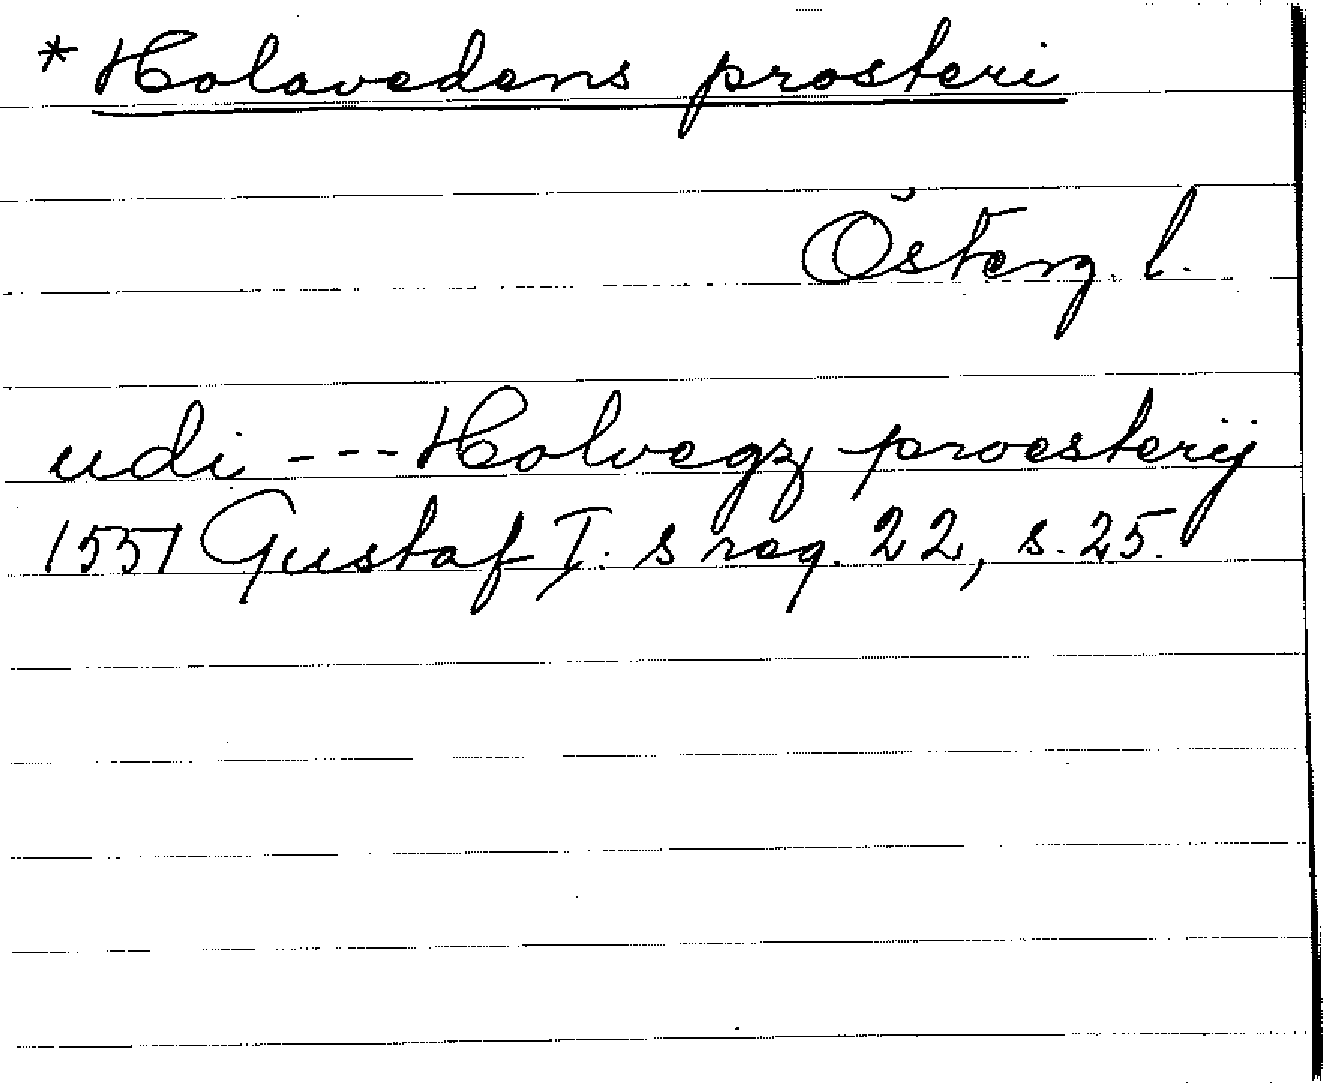 * Holavedens prosteri
Österg. l.
udi --- Holvegz proesterij
1551 Gustaf I:s reg. 22, s. 25.